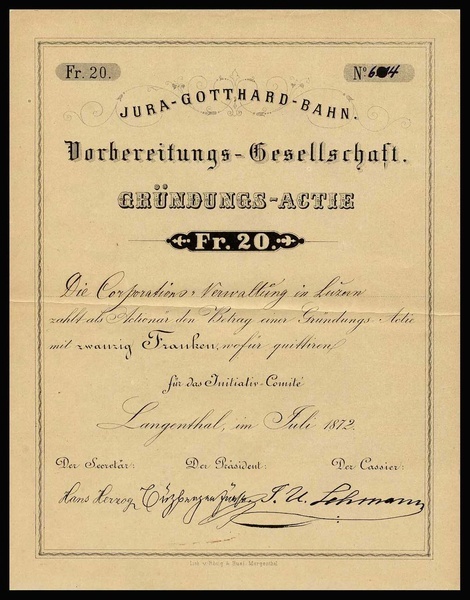 Fr. 20.
No
JURA-GOTTHARD-BAHN.
Vorbereitungs-Gesellschaft.
GRÜNDUNGS-ACTIE
Fr. 20.
Die Corporations-Verwaltung in Luzern
zahlt als Actionär den Betrag einer Gründungs-Actie
mit zwanzig Franken, wofür quittiren
für das Initiativ-Comité
Langenthal, im Juli 1872.
Der Secretär: Der Präsident: Der Cassier:
Hans Herzog J. U. Lehmann